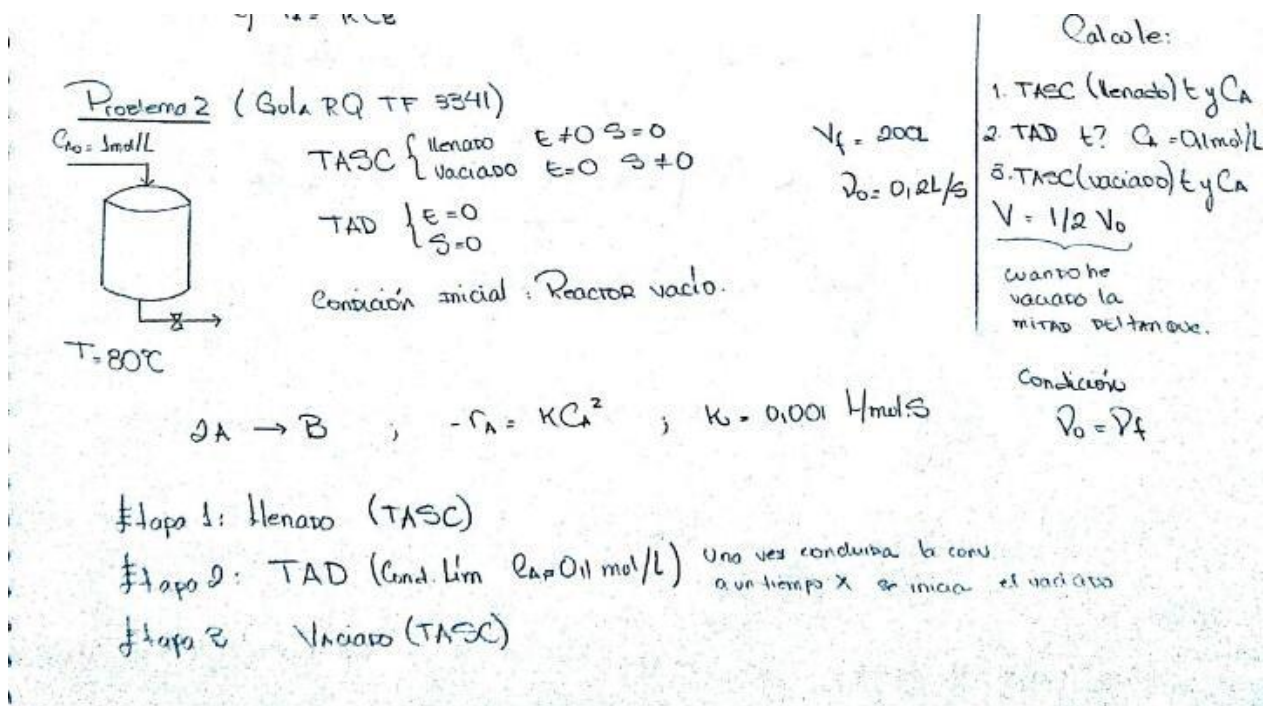 Problema 2 (Guía RQ TF 3341)
CAo = 1mol/L
TASC { llenado E≠0 S=0
vaciado E=0 S≠0
TAD { E=0
S=0
Condición inicial: Reactor vacío.
T=80°C
Vf = 200L
νo = 0,2L/S
Calcule:
1. TASC (llenado) t y CA
2. TAD t? CA = 0,1mol/L
3. TASC (vaciado) t y CA
V = 1/2 Vo
cuando he
vaciado la
mitad del tanque.
Condición
νo = νf
2A → B ; -rA = KCA² ; K = 0,001 L/mol S
Etapa 1: llenado (TASC)
Etapa 2: TAD (Cond. Lím CA=0,1 mol/L) Una vez concluida la conv
a un tiempo X se inicia el vaciado
Etapa 3: Vaciado (TASC)